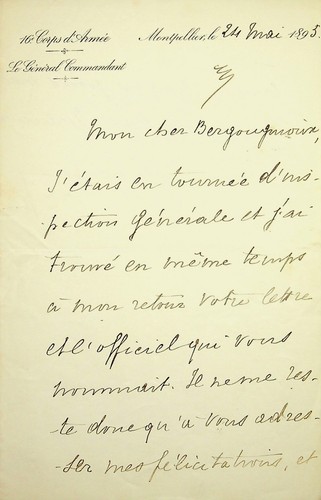 16e Corps d'Armée
Le Général Commandant
Montpellier, le 24 Mai 1895.
Mon cher Bergougnoux,
J'étais en tournée d'ins-
pection générale et j'ai
trouvé en même temps
à mon retour votre lettre
et l'officiel qui vous
nommait. Il ne me res-
te donc qu'à vous adres-
ser mes félicitations, et